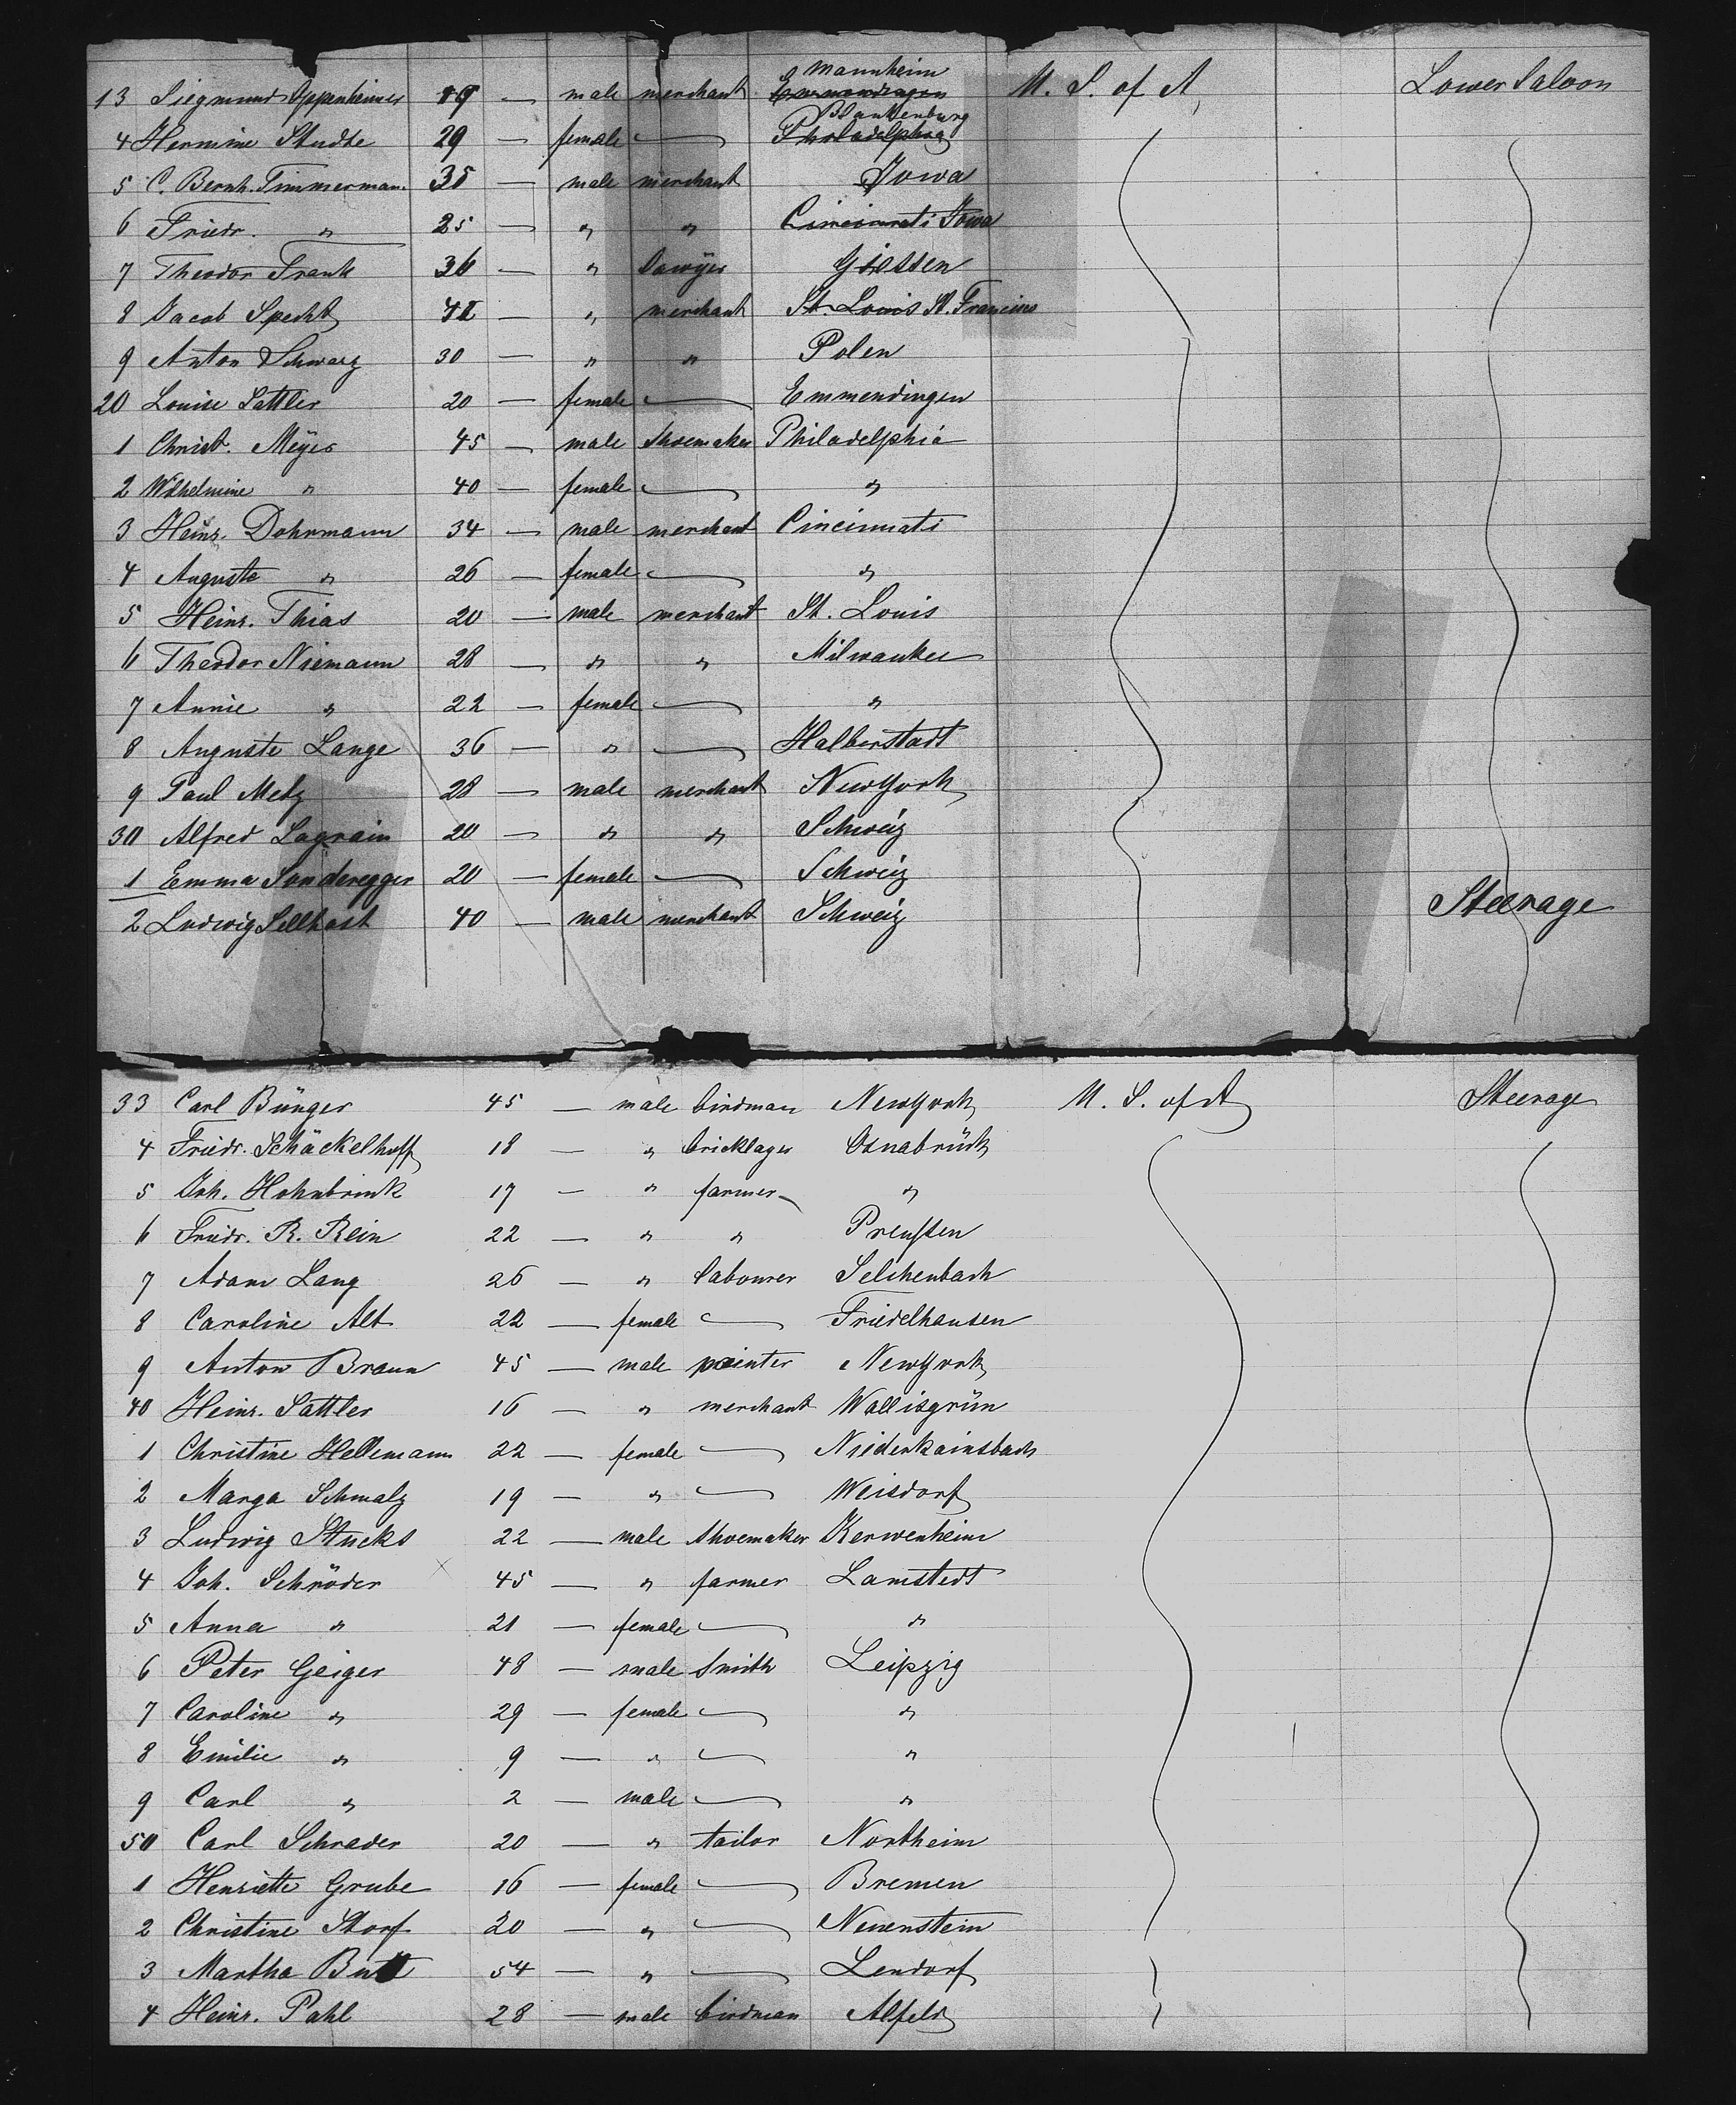 13 Siegmund Oppenheimer 19 — male merchant Mannheim Emmendingen U. S. of A. Lower Saloon
4 Hermine Studte 29 — female — Blankenburg Philadelphia
5 C. Bernh. Timmermann 35 — male merchant Iowa
6 Friedr. " 25 — " " Cincinnati Iowa
7 Theodor Frank 36 — " lawyer Giessen
8 Jacob Specht 42 — " merchant St. Louis St. Francisco
9 Anton Schwarz 30 — " " Polen
20 Louise Sattler 20 — female — Emmendingen
1 Christ. Meÿer 45 — male shoemaker Philadelphia
2 Wilhelmine " 40 — female — "
3 Heinr. Dohrmann 34 — male merchant Cincinnati
4 Auguste " 26 — female — "
5 Heinr. Thias 20 — male merchant St. Louis
6 Theodor Niemann 28 — " " Milwaukee
7 Annie " 22 — female — "
8 Auguste Lange 36 — " — Halberstadt
9 Paul Metz 28 — male merchant NewYork
30 Alfred Lagrain 20 — " " Schweiz
1 Emma Sonderegger 20 — female — Schweiz
2 Ludwig Sellhast 40 — male merchant Schweiz Steerage
33 Carl Bünger 45 — male birdman NewYork U. S. of A Steerage
4 Friedr. Schäckelhoff 18 — " bricklayer Osnabrück
5 Joh. Hohnbrink 17 — " farmer "
6 Friedr. R. Rein 22 — " " Preußen
7 Adam Lang 26 — " labourer Selchenbach
8 Caroline Alt 22 — female — Friedelhausen
9 Anton Braun 45 — male painter NewYork
40 Heinr. Sattler 16 — " merchant Wallisgrün
1 Christine Hellemann 22 — female — Niederkainsbach
2 Marga Schmalz 19 — " — Weisdorf
3 Ludwig Stucks 22 — male shoemaker Kerwenheim
4 Joh. Schröder 45 — " farmer Lamstedt
5 Anna " 21 — female — "
6 Peter Geiger 48 — male Smith Leipzig
7 Caroline " 29 — female — "
8 Emilie " 9 — " — "
9 Carl " 2 — male — "
50 Carl Schrader 20 — " tailor Northeim
1 Henriette Grube 16 — female — Bremen
2 Christine Storf 20 — " — Neuenstein
3 Martha Butt 54 — " — Lendorf
4 Heinr. Pahl 28 — male birdman Alfeld